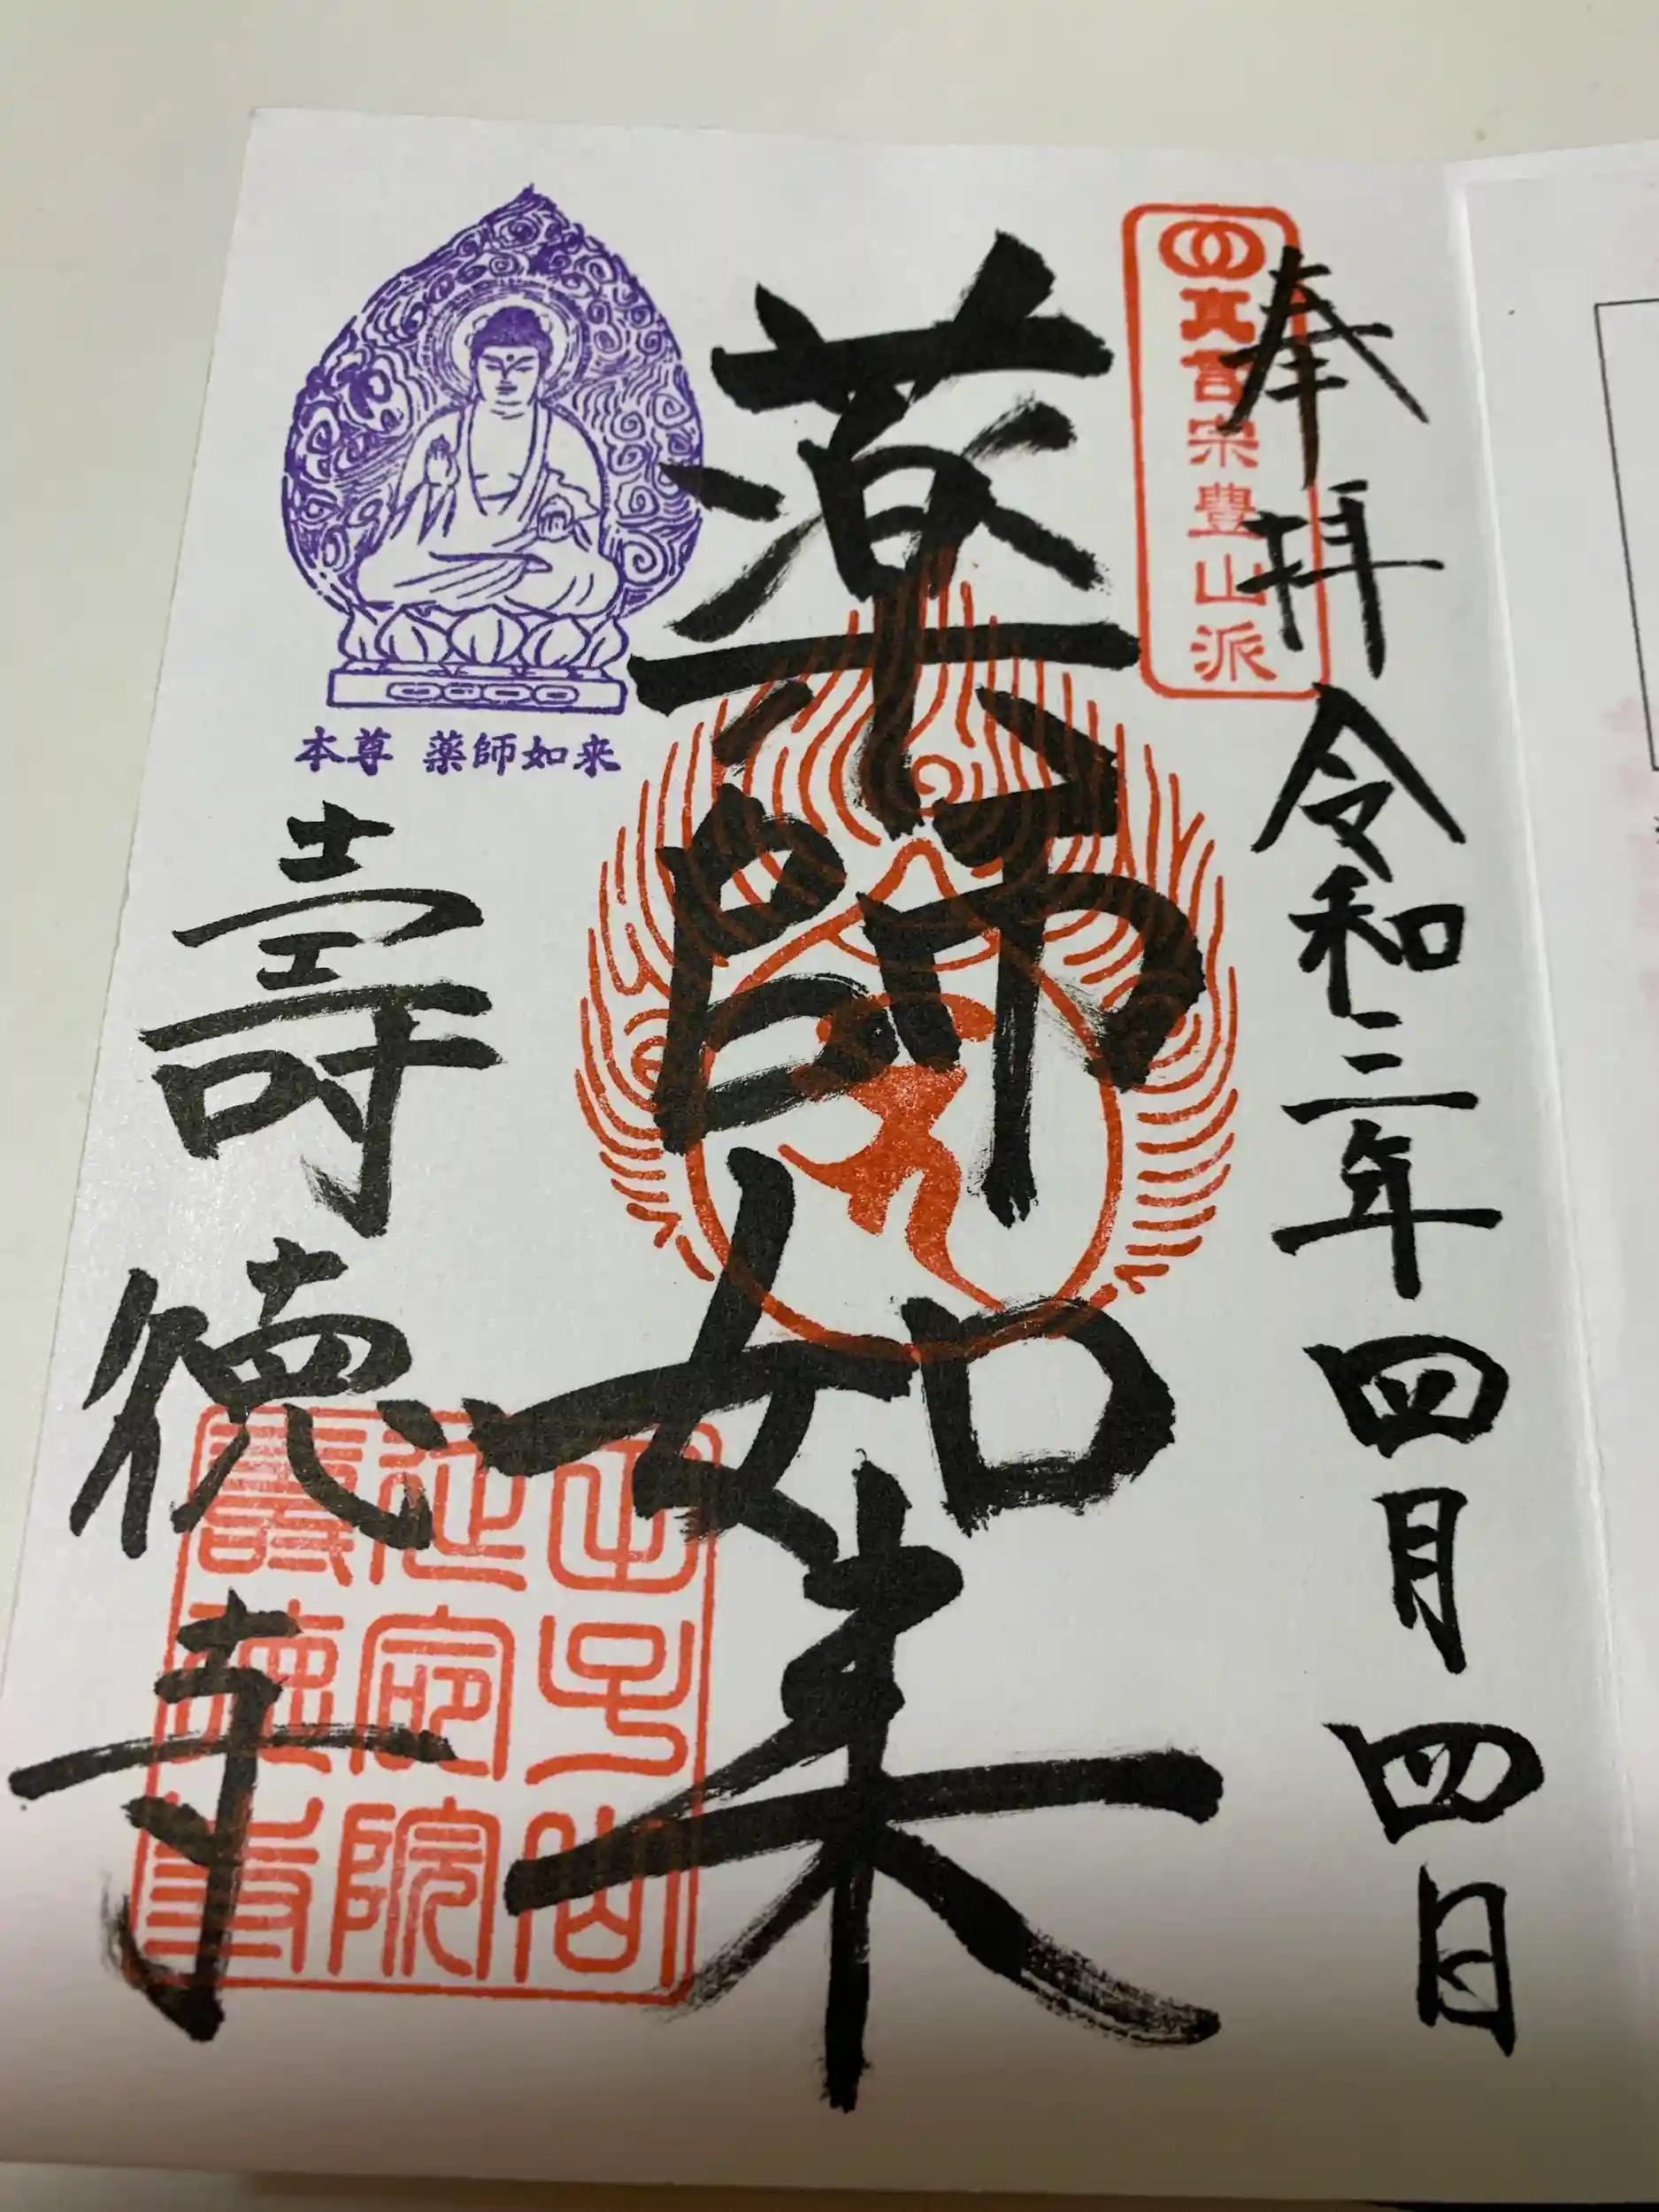 奉拝 令和三年四月四日
真言宗豊山派
薬師如来
本尊 薬師如来
壽徳寺
延命院
壽徳寺